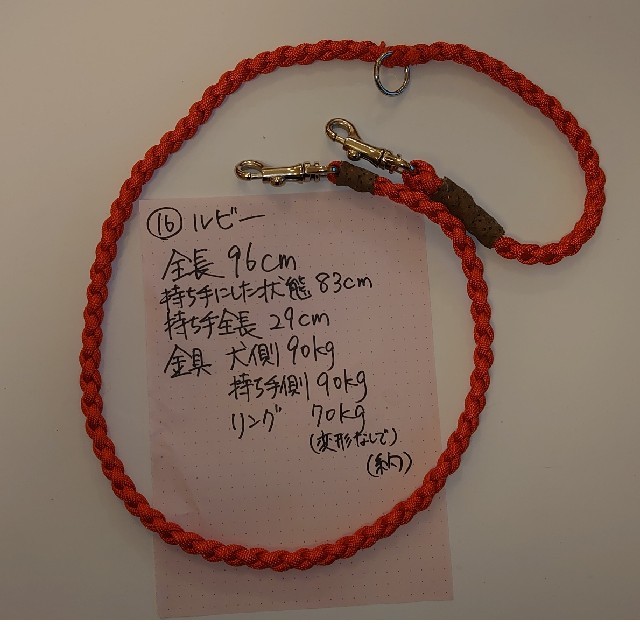 ⑯ ルビー
全長 96cm
持ち手にした状態 83cm
持ち手全長 29cm
金具 犬側 90kg
持ち手側 90kg
リング 70kg
(変形なしで)
(約)